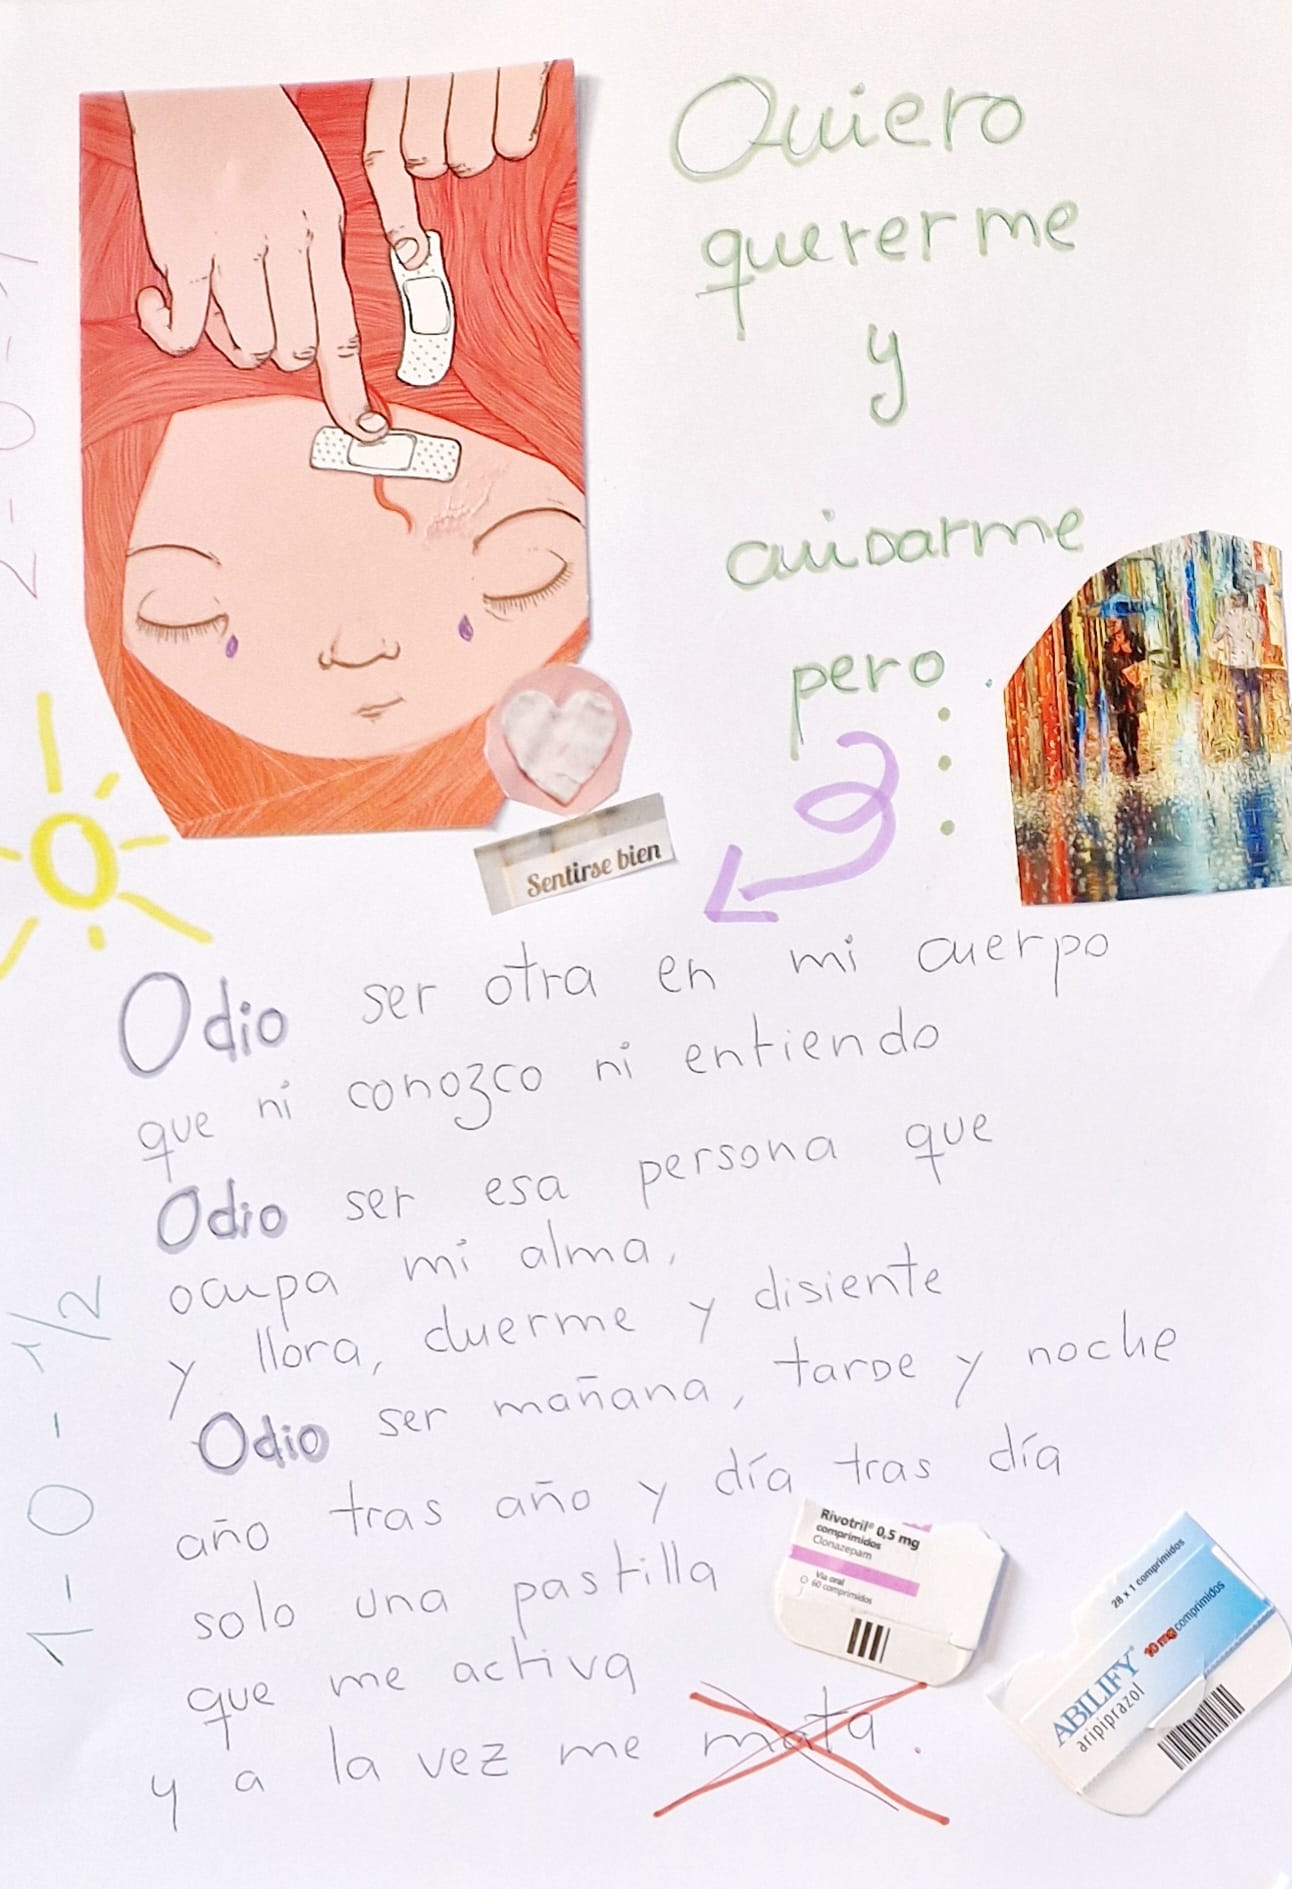 Quiero
quererme
y
cuidarme
pero...
Sentirse bien
Odio ser otra en mi cuerpo
que ni conozco ni entiendo
Odio ser esa persona que
ocupa mi alma,
y llora, duerme y disiente
Odio ser mañana, tarde y noche
año tras año y día tras día
solo una pastilla
que me activa
y a la vez me mata.
Rivotril® 0,5 mg
comprimidos
Clonazepam
Vía oral
60 comprimidos
28 x 1 comprimidos
ABILIFY® 10 mg comprimidos
aripiprazol
1-0-1/2
2-0-1